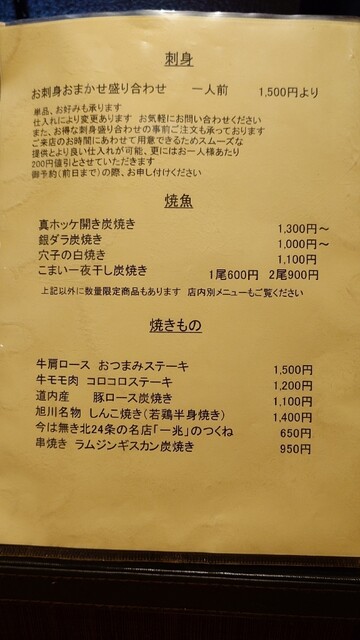 刺身
お刺身おまかせ盛り合わせ 一人前 1,500円より
単品、お好みも承ります
仕入れにより変更あります お気軽にお問い合わせください
また、お得な刺身盛り合わせの事前ご注文も承っております
ご来店のお時間にあわせて用意できるためスムーズな
提供とより良い仕入れが可能、更にはお一人様あたり
200円値引とさせていただきます
御予約(前日まで)の際、お申し付けください
焼魚
真ホッケ開き炭焼き 1,300円～
銀ダラ炭焼き 1,000円～
穴子の白焼き 1,100円
こまい一夜干し炭焼き 1尾600円 2尾900円
上記以外に数量限定商品もあります 店内別メニューもご覧ください
焼きもの
牛肩ロース おつまみステーキ 1,500円
牛モモ肉 コロコロステーキ 1,200円
道内産 豚ロース炭焼き 1,100円
旭川名物 しんこ焼き(若鶏半身焼き) 1,400円
今は無き北24条の名店｢一兆｣のつくね 650円
串焼き ラムジンギスカン炭焼き 950円